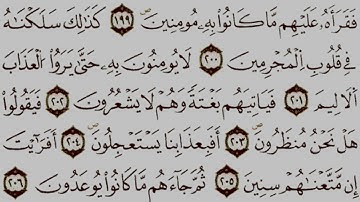 فَقَرَأَهُۥ عَلَيْهِم مَّا كَانُوا۟ بِهِۦ مُؤْمِنِينَ ١٩٩ كَذَٰلِكَ سَلَكْنَٰهُ
فِى قُلُوبِ ٱلْمُجْرِمِينَ ٢٠٠ لَا يُؤْمِنُونَ بِهِۦ حَتَّىٰ يَرَوُا۟ ٱلْعَذَابَ
ٱلْأَلِيمَ ٢٠١ فَيَأْتِيَهُم بَغْتَةً وَهُمْ لَا يَشْعُرُونَ ٢٠٢ فَيَقُولُوا۟
هَلْ نَحْنُ مُنظَرُونَ ٢٠٣ أَفَبِعَذَابِنَا يَسْتَعْجِلُونَ ٢٠٤ أَفَرَءَيْتَ
إِن مَّتَّعْنَٰهُمْ سِنِينَ ٢٠٥ ثُمَّ جَآءَهُم مَّا كَانُوا۟ يُوعَدُونَ ٢٠٦